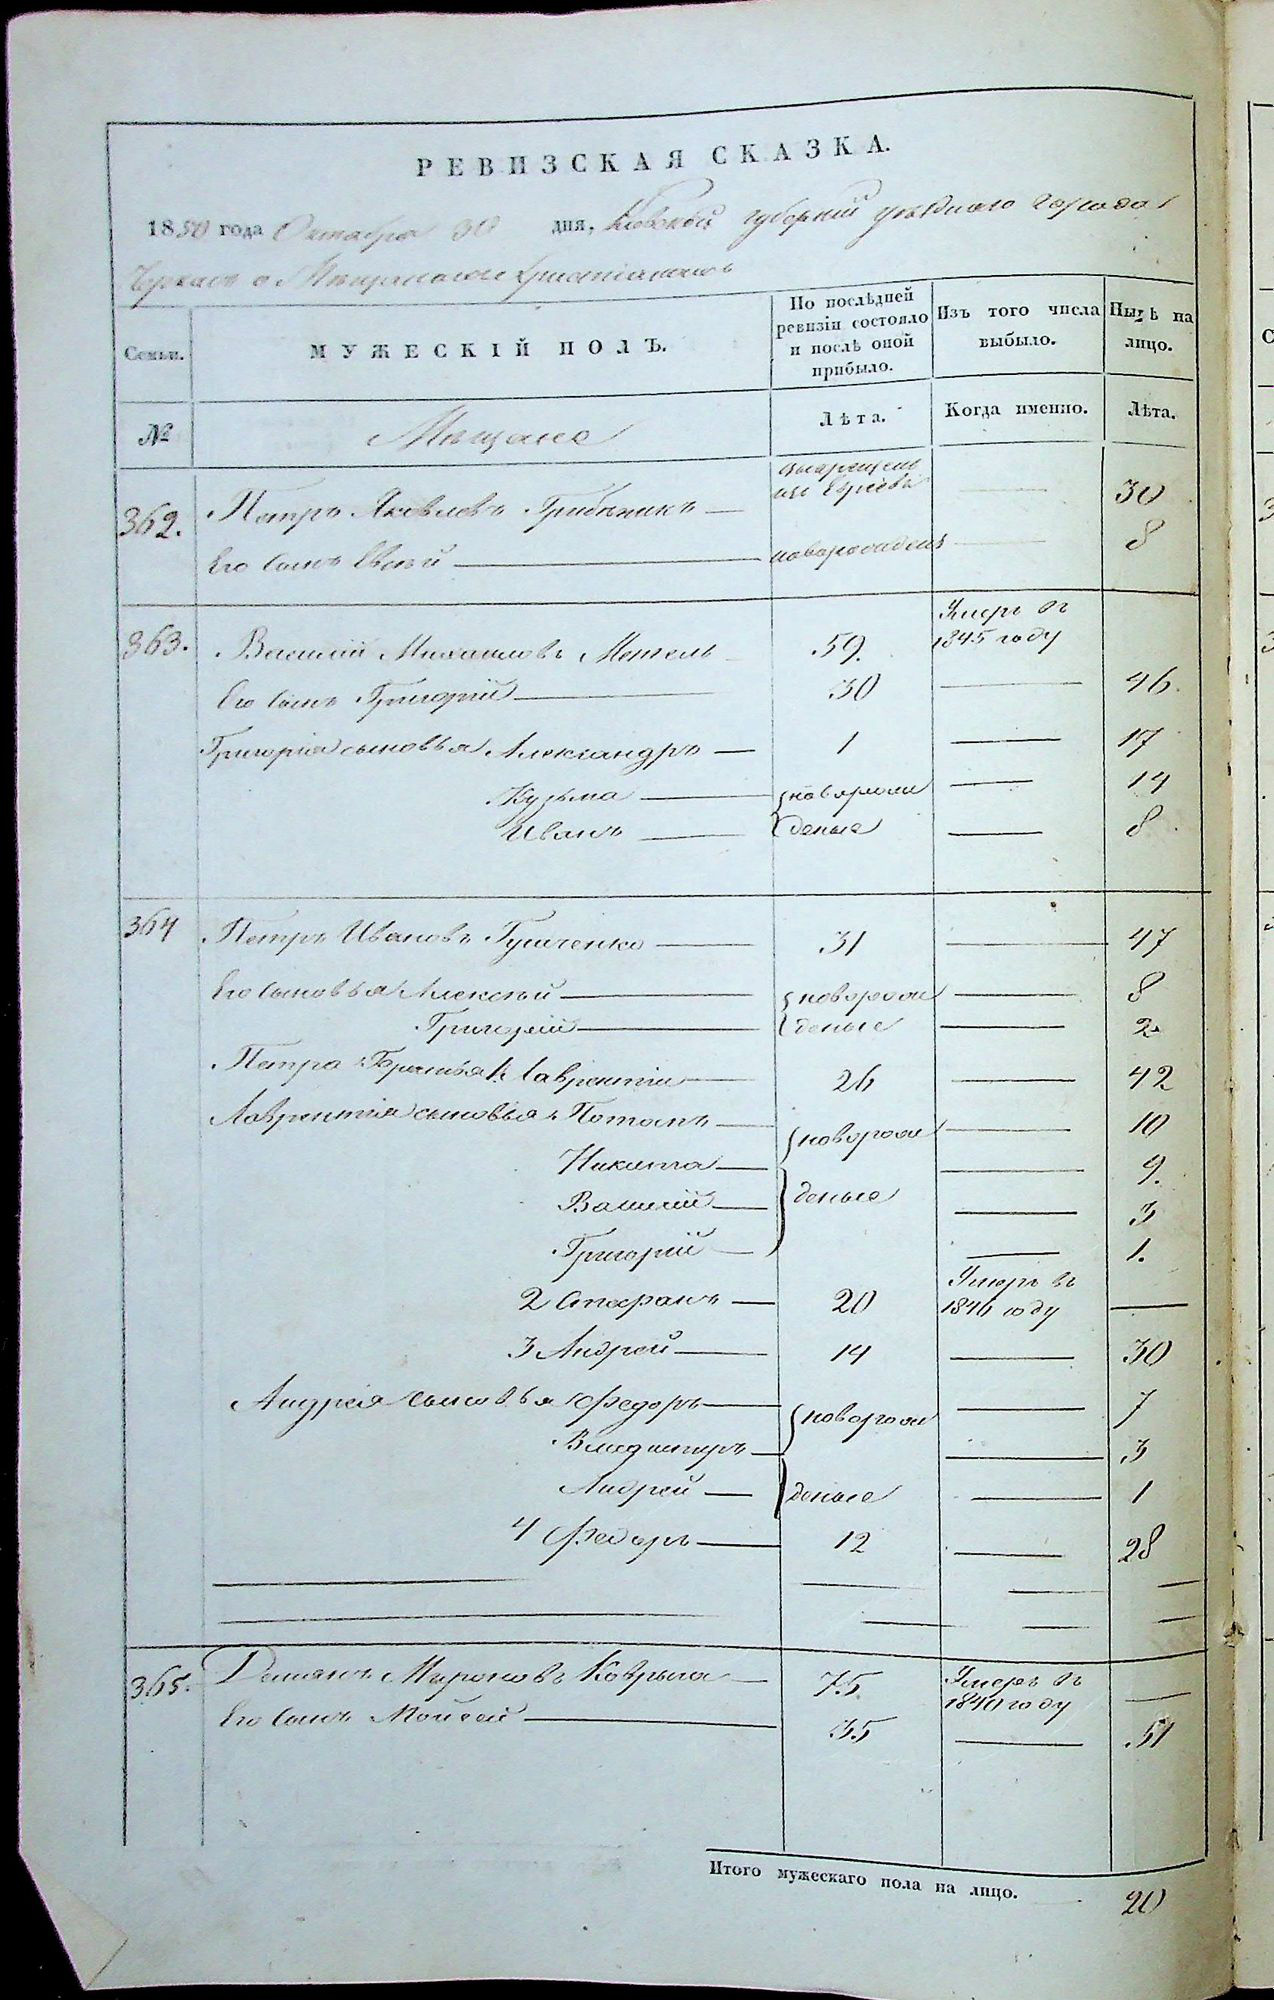 РЕВИЗСКАЯ СКАЗКА.
1850 года Октября 30 дня, Киевской губернии уѣзднаго города
Черкасъ о Мѣщанахъ христіанахъ
Семьи. МУЖЕСКІЙ ПОЛЪ. По послѣдней ревизіи состояло и послѣ оной прибыло. Изъ того числа выбыло. Нынѣ на лицо.
№ Мѣщане Лѣта. Когда именно. Лѣта.
362. Петръ Яковлевъ Грибѣникъ — изъ — 30
Его сынъ Евсѣй — новорожденъ — 8
363. Василій Михайловъ 59. Умеръ въ 1845 году
Его сынъ Григорій — 30 — 46.
Григорія сыновья Александръ — 1 — 17
Кузьма — новорож — 14
Иванъ — деные — 8
364 Петръ Ивановъ — 31 — 47
Его сыновья Алексѣй — новорож — 8
Григорій — деные — 2
Петра братья 1. Лаврентій — 26 — 42
Лаврентія сыновья Потапъ — новорож — 10
Никита — 9.
Василій — деные — 3
Григорій — 1.
2 Стефанъ — 20 Умеръ въ 1846 году —
3 Андрей — 14 — 30
Андрея сыновья Федоръ — новорож — 7
Владимиръ — 3
Андрей — деные — 1
4 Федоръ — 12 — 28
365. Демянъ Мироновъ — 75. Умеръ въ 1840 году —
Его сынъ Мойсей — 35 — 51
Итого мужескаго пола на лицо. 20